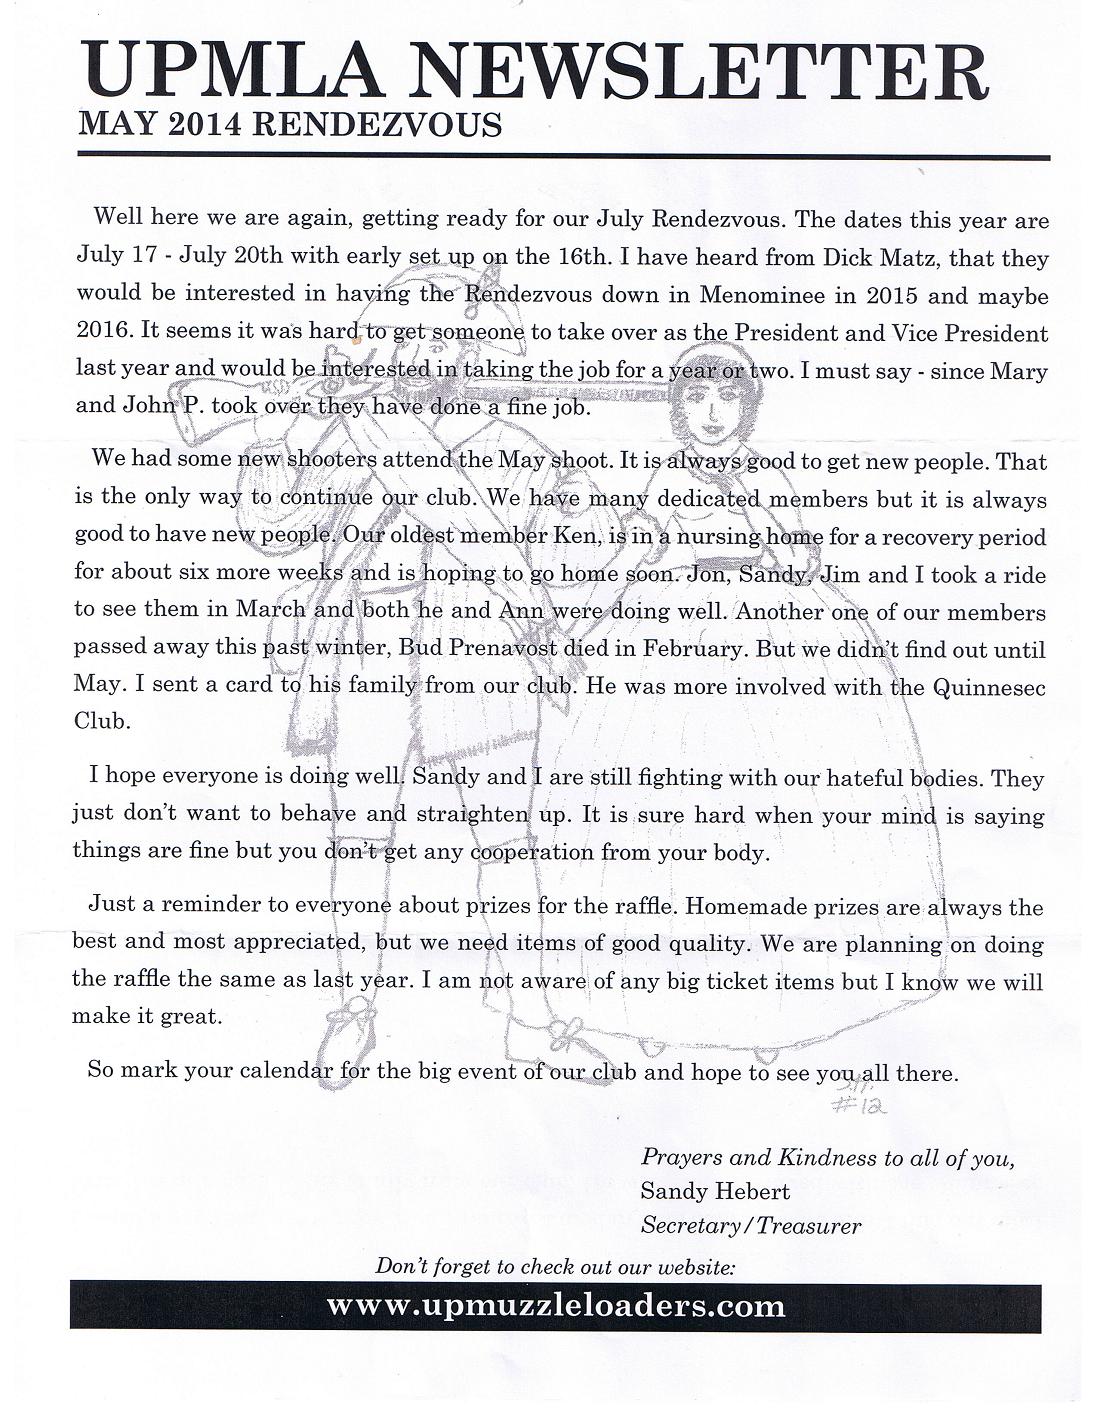 UPMLA NEWSLETTER
MAY 2014 RENDEZVOUS
Well here we are again, getting ready for our July Rendezvous. The dates this year are
July 17 - July 20th with early set up on the 16th. I have heard from Dick Matz, that they
would be interested in having the Rendezvous down in Menominee in 2015 and maybe
2016. It seems it was hard to get someone to take over as the President and Vice President
last year and would be interested in taking the job for a year or two. I must say - since Mary
and John P. took over they have done a fine job.
We had some new shooters attend the May shoot. It is always good to get new people. That
is the only way to continue our club. We have many dedicated members but it is always
good to have new people. Our oldest member Ken, is in a nursing home for a recovery period
for about six more weeks and is hoping to go home soon. Jon, Sandy, Jim and I took a ride
to see them in March and both he and Ann were doing well. Another one of our members
passed away this past winter, Bud Prenavost died in February. But we didn't find out until
May. I sent a card to his family from our club. He was more involved with the Quinnesec
Club.
I hope everyone is doing well. Sandy and I are still fighting with our hateful bodies. They
just don't want to behave and straighten up. It is sure hard when your mind is saying
things are fine but you don't get any cooperation from your body.
Just a reminder to everyone about prizes for the raffle. Homemade prizes are always the
best and most appreciated, but we need items of good quality. We are planning on doing
the raffle the same as last year. I am not aware of any big ticket items but I know we will
make it great.
So mark your calendar for the big event of our club and hope to see you all there.
#12
Prayers and Kindness to all of you,
Sandy Hebert
Secretary/Treasurer
Don't forget to check out our website:
www.upmuzzleloaders.com